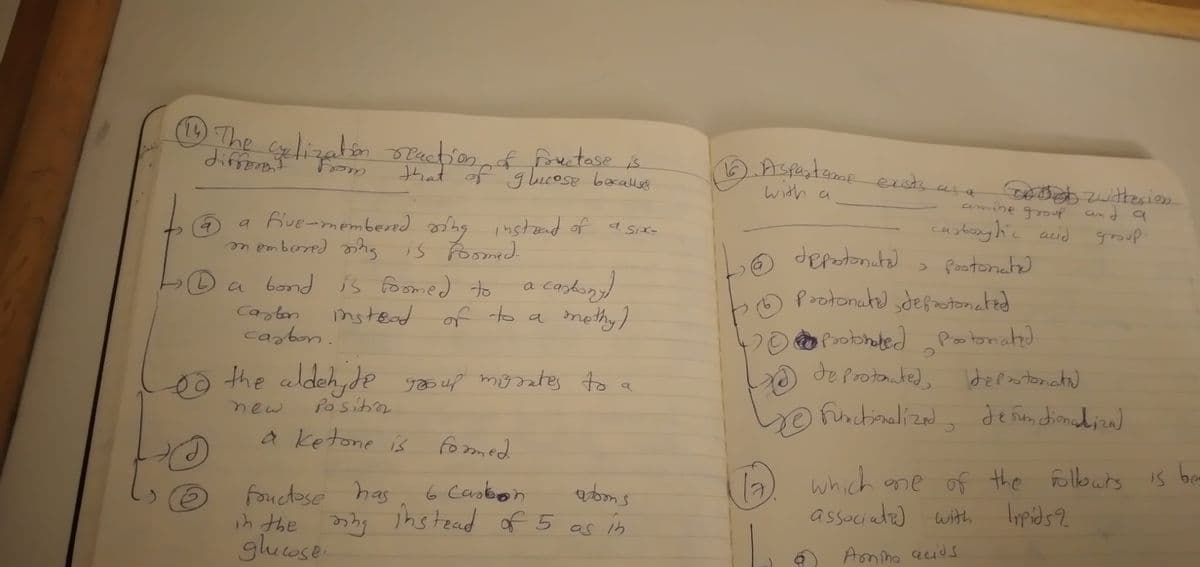 (14) The cyclization reaction of fructose is
different from that of glucose because
(a) a five-membered ring instead of a six-
membered ring is formed.
(b) a bond is formed to a carbonyl
carbon instead of to a methyl
carbon.
(c) the aldehyde group migrates to a
new position
(d) a ketone is formed
(e) fructose has 6 carbon atoms
in the ring instead of 5 as in
glucose.
(16). Aspartame exists as a zwitterion
with a ________ amine group and a
________ carboxylic acid group
(a) deprotonated, protonated
(b) Protonated, deprotonated
(c) protonated, protonated
(d) deprotonated, deprotonated
(e) functionalized, defunctionalized
(17). which one of the follows is be
associated with lipids?
(a) Amino acids